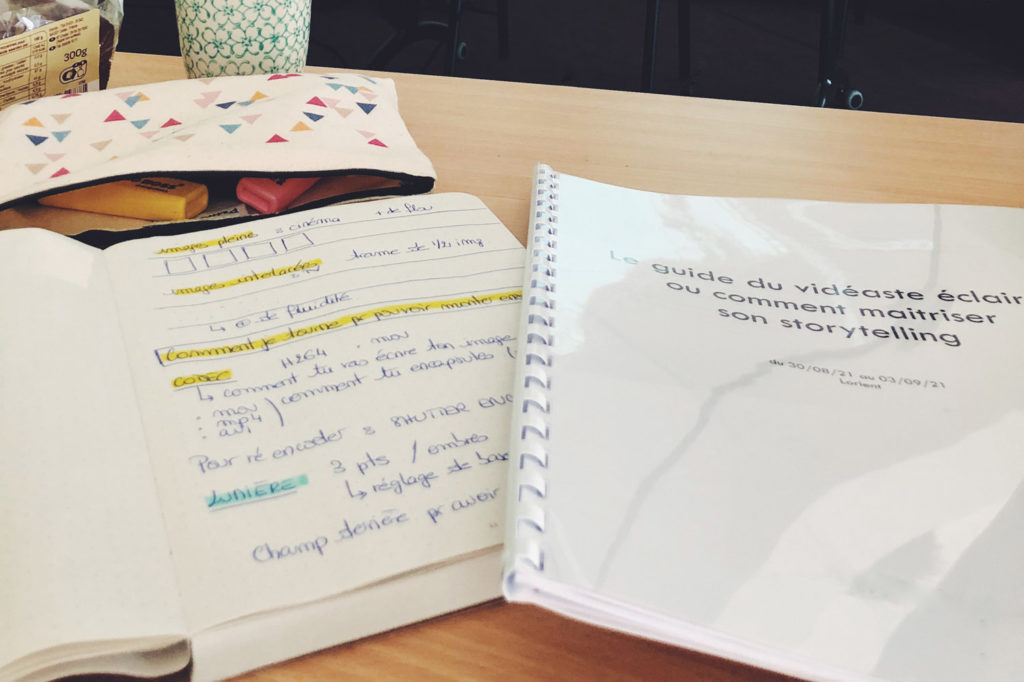 300g
BOSS
images pleine = cinéma + de flou
images interlacées trame de 1/2 img
↳ ⊕ de fluidité
Comment je tourne pr pouvoir monter
CODEC H264 . mov
↳ comment tu vas écrire ton image
: mov ) comment tu encapsules
: mp4
: avi
Pour ré encoder : SHUTTER ENC
LUMIÈRE 3 pts / ombres
↳ réglage de base
Champ derrière pr avoir
Le guide du vidéaste éclair
ou comment maitriser
son storytelling
du 30/08/21 au 03/09/21
Lorient